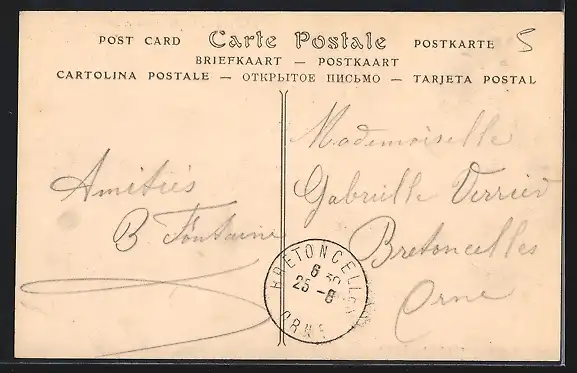 POST CARD Carte Postale POSTKARTE
5
BRIEFKAART — POSTKAART
CARTOLINA POSTALE — ОТКРЫТОЕ ПИСЬМО — TARJETA POSTAL
Amitiés
B Fontaine
Mademoiselle
Gabrielle Verrier
Bretoncelles
Orne
BRETONCELLES
6 30
25 - 8
ORNE